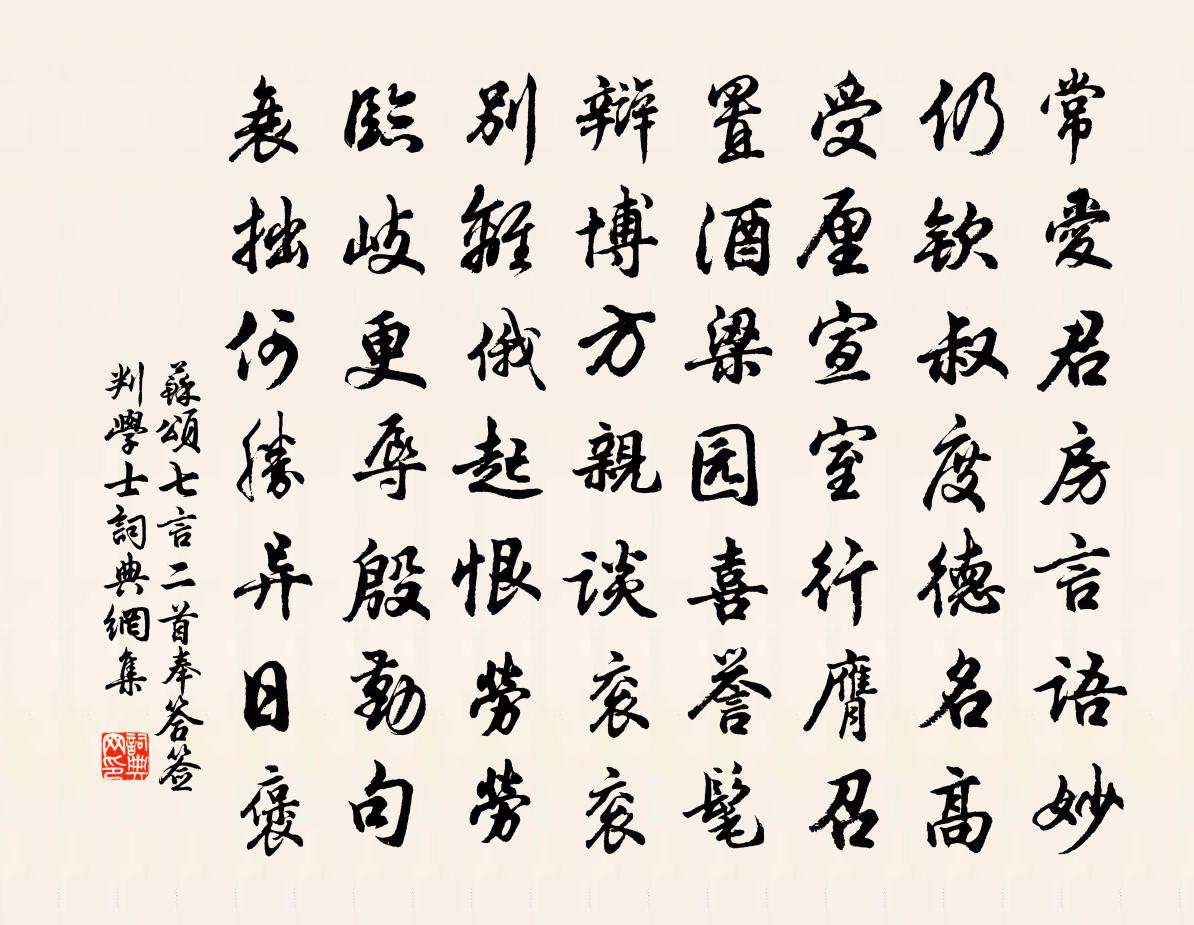 常愛君房言語妙
仍欽叔度德名高
受厘宣室行膺召
置酒梁园喜譽髦
辯博方親談衮衮
別離俄起恨勞勞
臨歧更辱殷勤句
衰拙何勝异日褒
蘇頌七言二首奉答簽
判學士詞典網集
詞典
网印